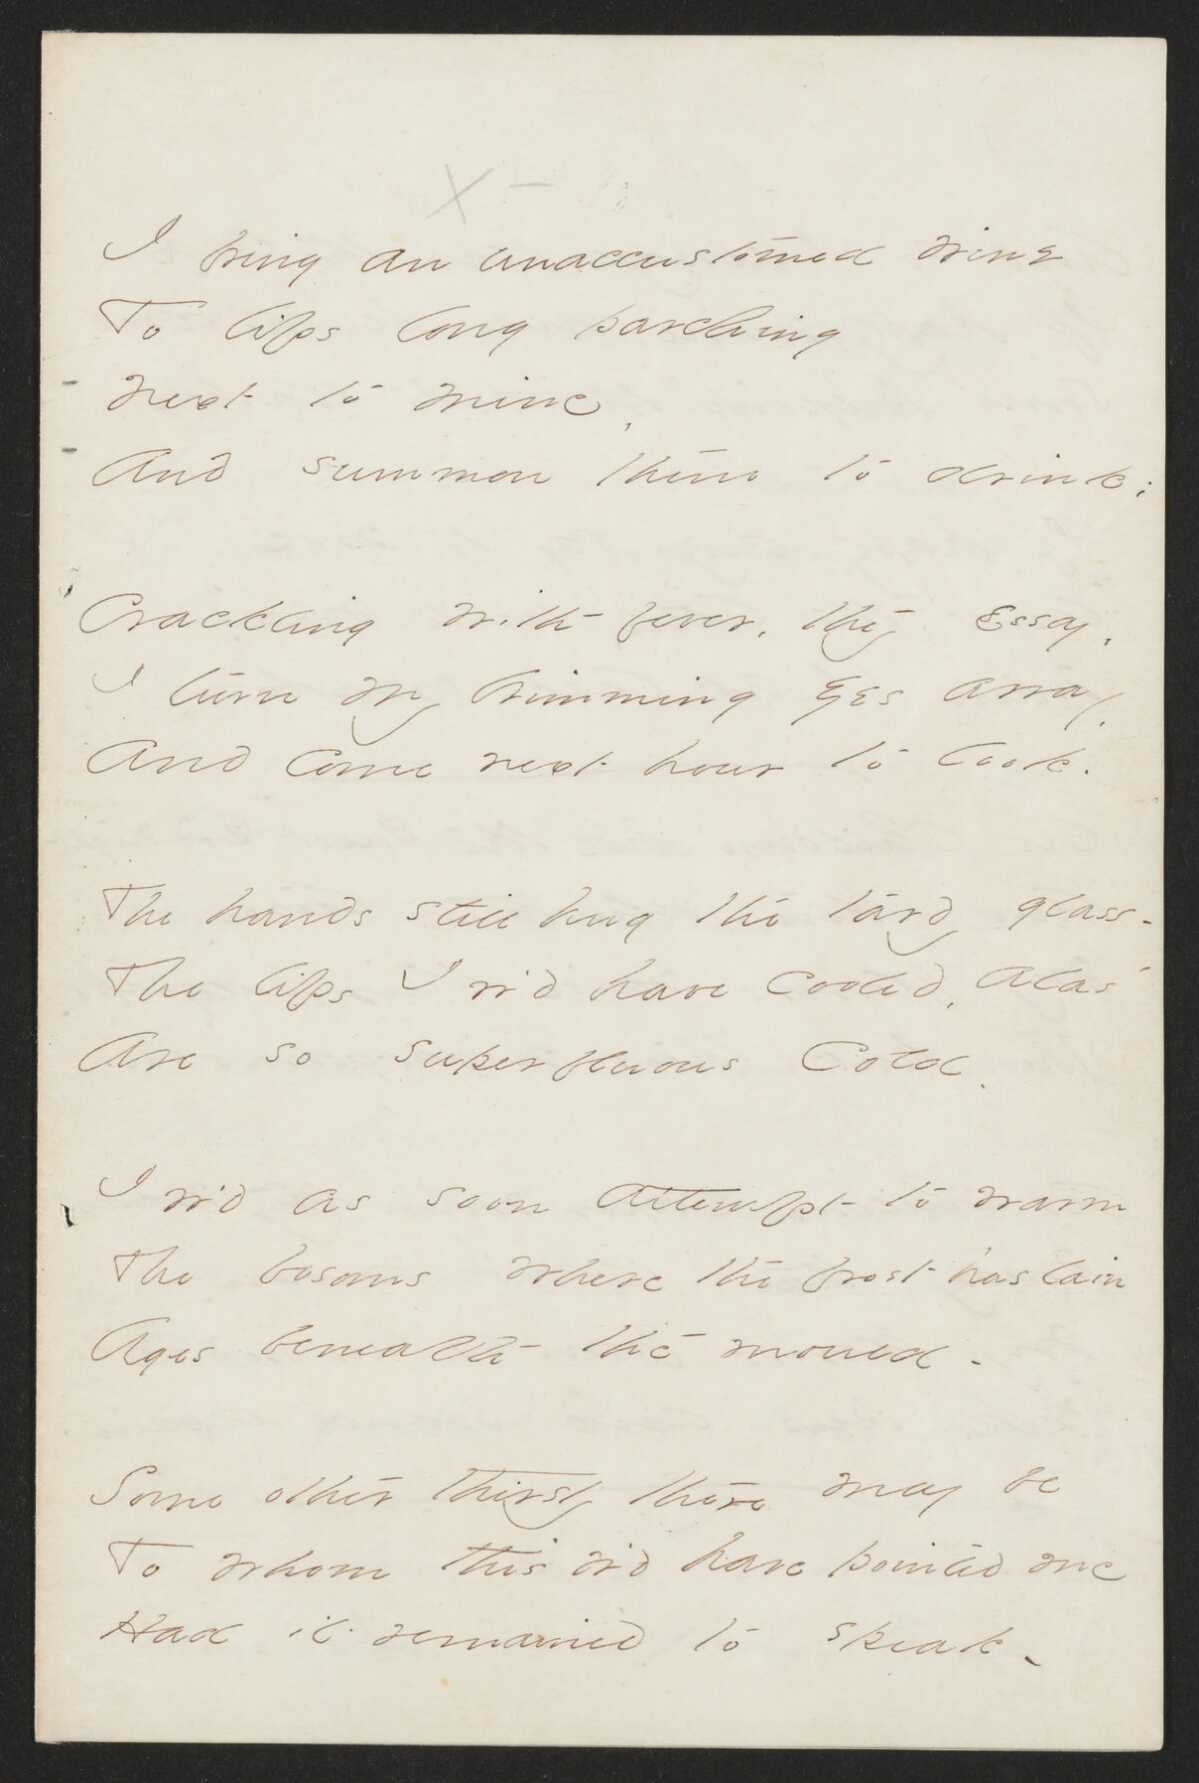 I bring an unaccustomed wine
To lips long parching
next to mine,
And summon them to drink;
Crackling with fever, they Essay,
I turn my brimming Eyes away,
And come next hour to look.
The hands still hug the tardy glass -
The lips I w'd have cooled, alas -
Are so superfluous Cold.
I w'd as soon attempt to warm
The bosoms where the frost has lain
Ages beneath the mould -
Some other thirsty there may be
To whom this w'd have pointed me
Had it remained to speak -